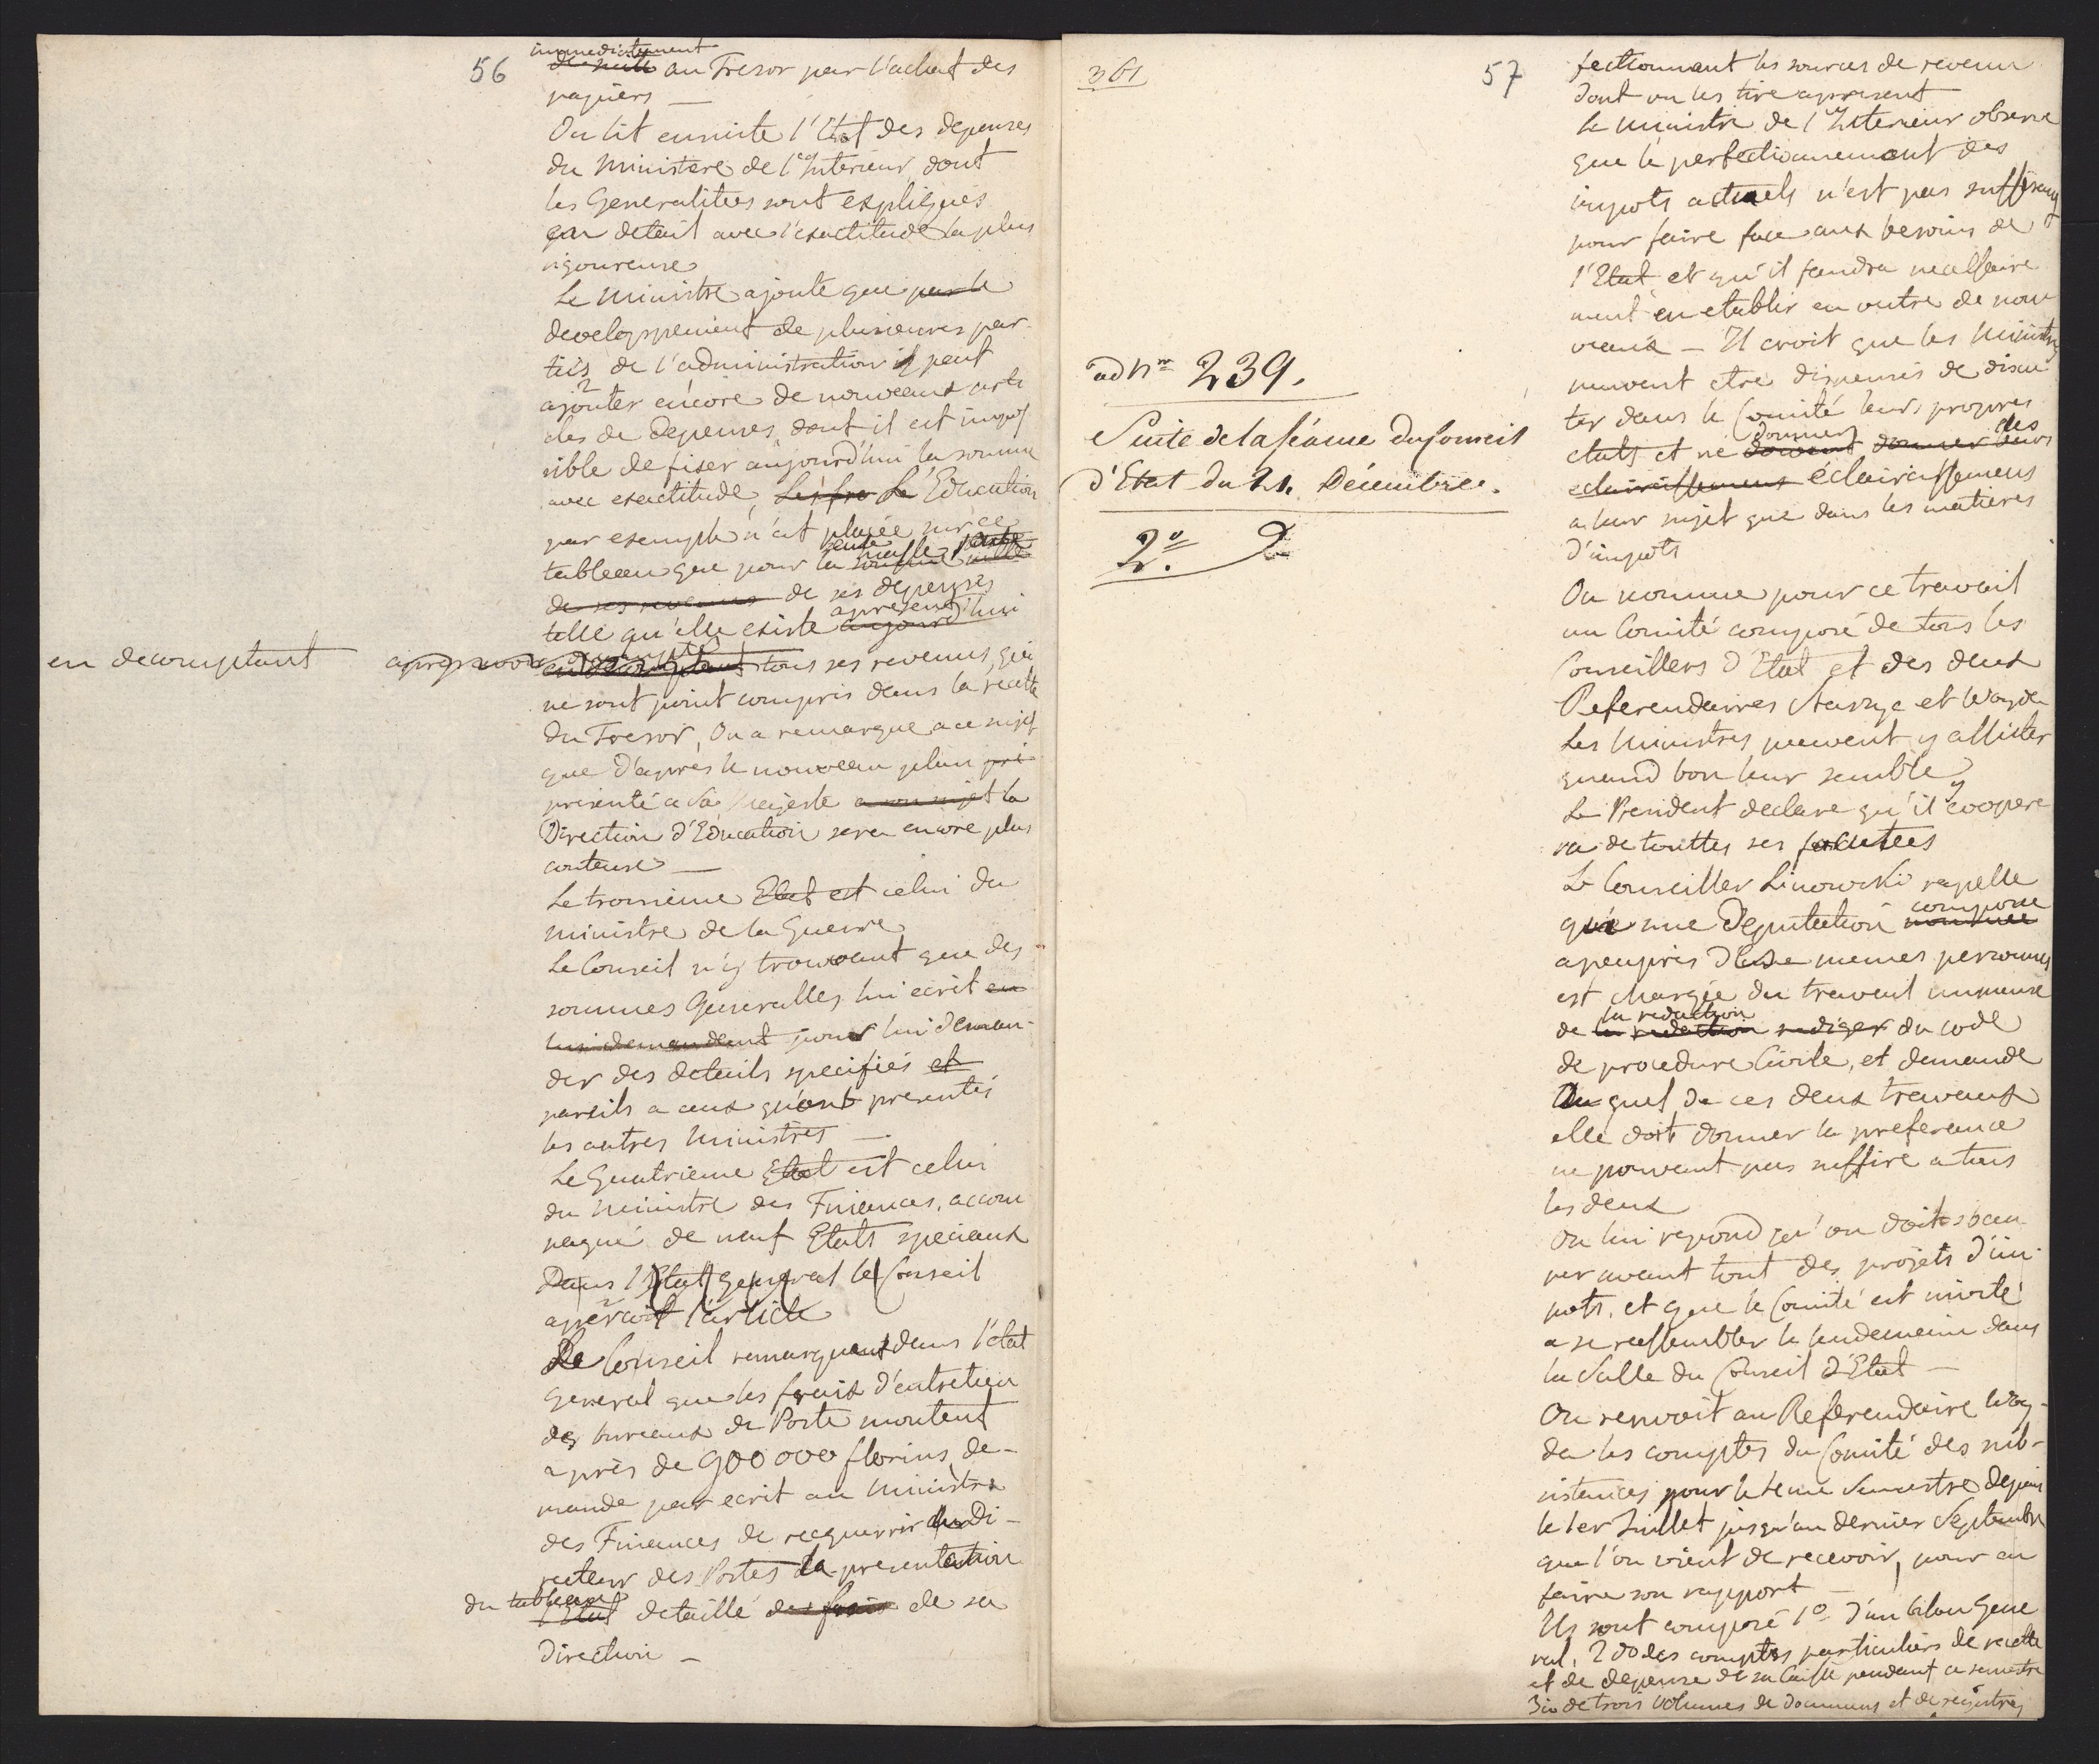 56
immediatement
de suite au Tresor par l'achat des
papiers —
On lit ensuite l'Etat des depenses
du Ministere de l'Interieur, dont
les Generalitees sont expliqués
en detail avec l'exactitude la plus
rigoureuse
Le Ministre ajoute que par le
developpement de plusieures par-
ties de l'administration il peut
ajouter encore de nouveaux arti
cles de depenses, dont il est impos
sible de fixer aujourd'hui la somme
avec exactitude, Les fra La Education
par exemple n'est placée sur ce
tableau que pour la seule masse
de ses revenus de ses depenses
telle qu'elle existe apresent aujourd'hui
en decomptant après avoir decompté en decomptant tous ses revenus, qui
ne sont point compris dans la recette
du Tresor, On a remarque a ce sujet
que d'apres le nouveau plan pré
presenté a Sa Majeste a son sujet la
Direction d'Education sera encore plus
couteuse —
Le troisieme Etat est celui du
ministre de la Guerre
Le Conseil n'y trouvant que des
sommes Generalles, lui ecrit en
lui demandant pour lui deman-
der des details specifiés et
pareils a ceux qu'ont presentés
les autres Ministres —
Le Quatrieme Etat est celui
du Ministre des Finances, accom
pagné de neuf Etats speciaux
Dans l'Etat general le Conseil
aperçoit l'article
Le Conseil remarquant dans l'état
general que les frais d'entretien
des bureaux de Poste montent
a près de 900 000 florins, de-
mande par ecrit au Ministre
des Finances de recquerrir du Di-
recteur des Postes la presentation
du tableau l'Etat detaillé des frais de sa
direction —
361
ad Nm 239.
Suite de la séance du Conseil
d'Etat du 21. Décembre.
2o
57
fectionnant les sources de revenu
dont on les tire apresent
Le Ministre de l'Interieur observe
que le perfectionnement des
impots actuels n'est pas suffisant
pour faire face aux besoins de
l'Etat, et qu'il faudra necessaire
ment en etablir en outre de nou
veaux — Il croit que les Ministres
peuvent etre dispensés de discu
ter dans le Comité leurs propres
etats et ne donner des doivent donner leurs
eclaircissemens éclaircissemens
a leur sujet que dans les matieres
d'impots
On nomme pour ce travail
un Comité composé de tous les
Conseillers d'Etat et des deux
Referendaires Staszyc et Woyda
Les Ministres peuvent y assister
quand bon leur semble
Le President declare qu'il y coopere
ra de touttes ses facultees
Le Conseiller Linowski rapelle
qu'une Deputation composée nommée
apeupres des memes personnes
est chargée du travail immense
de la redaction la redaction rediger du code
de procedure Civile, et demande
Au quel de ces deux travaux
elle doit donner la preference
ne pouvant pas suffire a tous
les deux
On lui repond qu'on doit s'occu
per avant tout des projets d'im-
pots, et que le Comité est invité
a se rassembler le lendemain dans
la Salle du Conseil d'Etat —
On renvoit au Referendaire Woy-
da les comptes du Comité des sub-
sistances pour le 2eme Semestre depuis
le 1er Juillet jusqu'au dernier Septembre
que l'on vient de recevoir, pour en
faire son rapport —
Ils sont composé 1o d'un bilan Gene
ral, 2do des comptes particuliers de recette
et de depense de sa Caisse pendant ce semestre
3io de trois volumes de documens et de registres